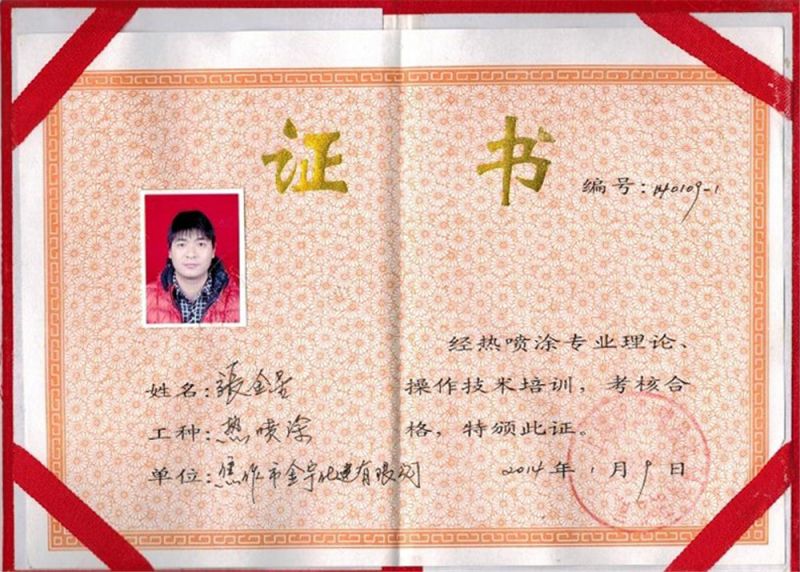 证书
编号：140109-1
姓名：張金呈
工种：热喷涂
单位：焦作市金宇化建有限公司
经热喷涂专业理论、
操作技术培训，考核合
格，特颁此证。
2014年1月9日